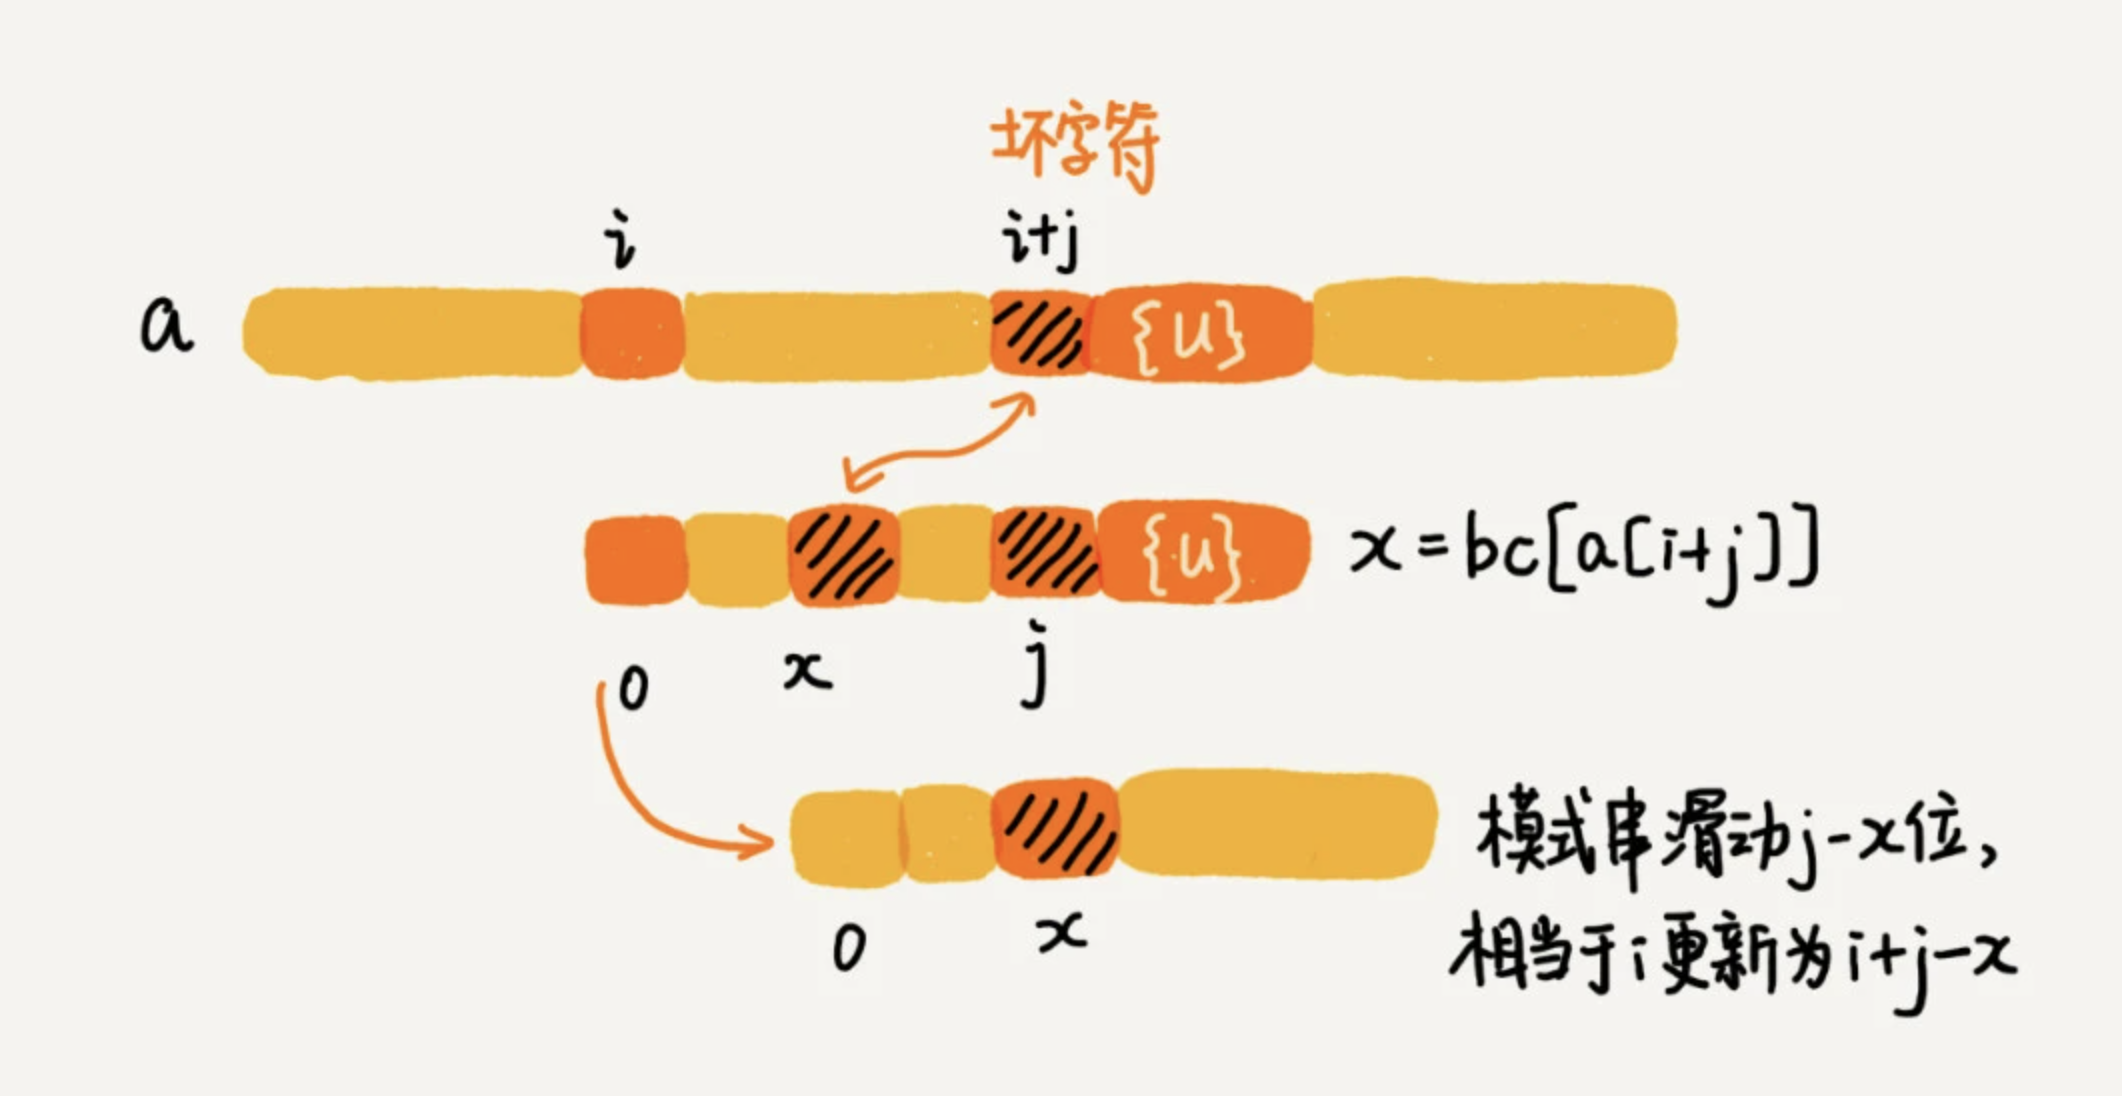 坏字符
i
i+j
a
{u}
{u}
x=bc[a[i+j]]
0
x
j
模式串滑动j-x位,
相当于i更新为i+j-x
0
x